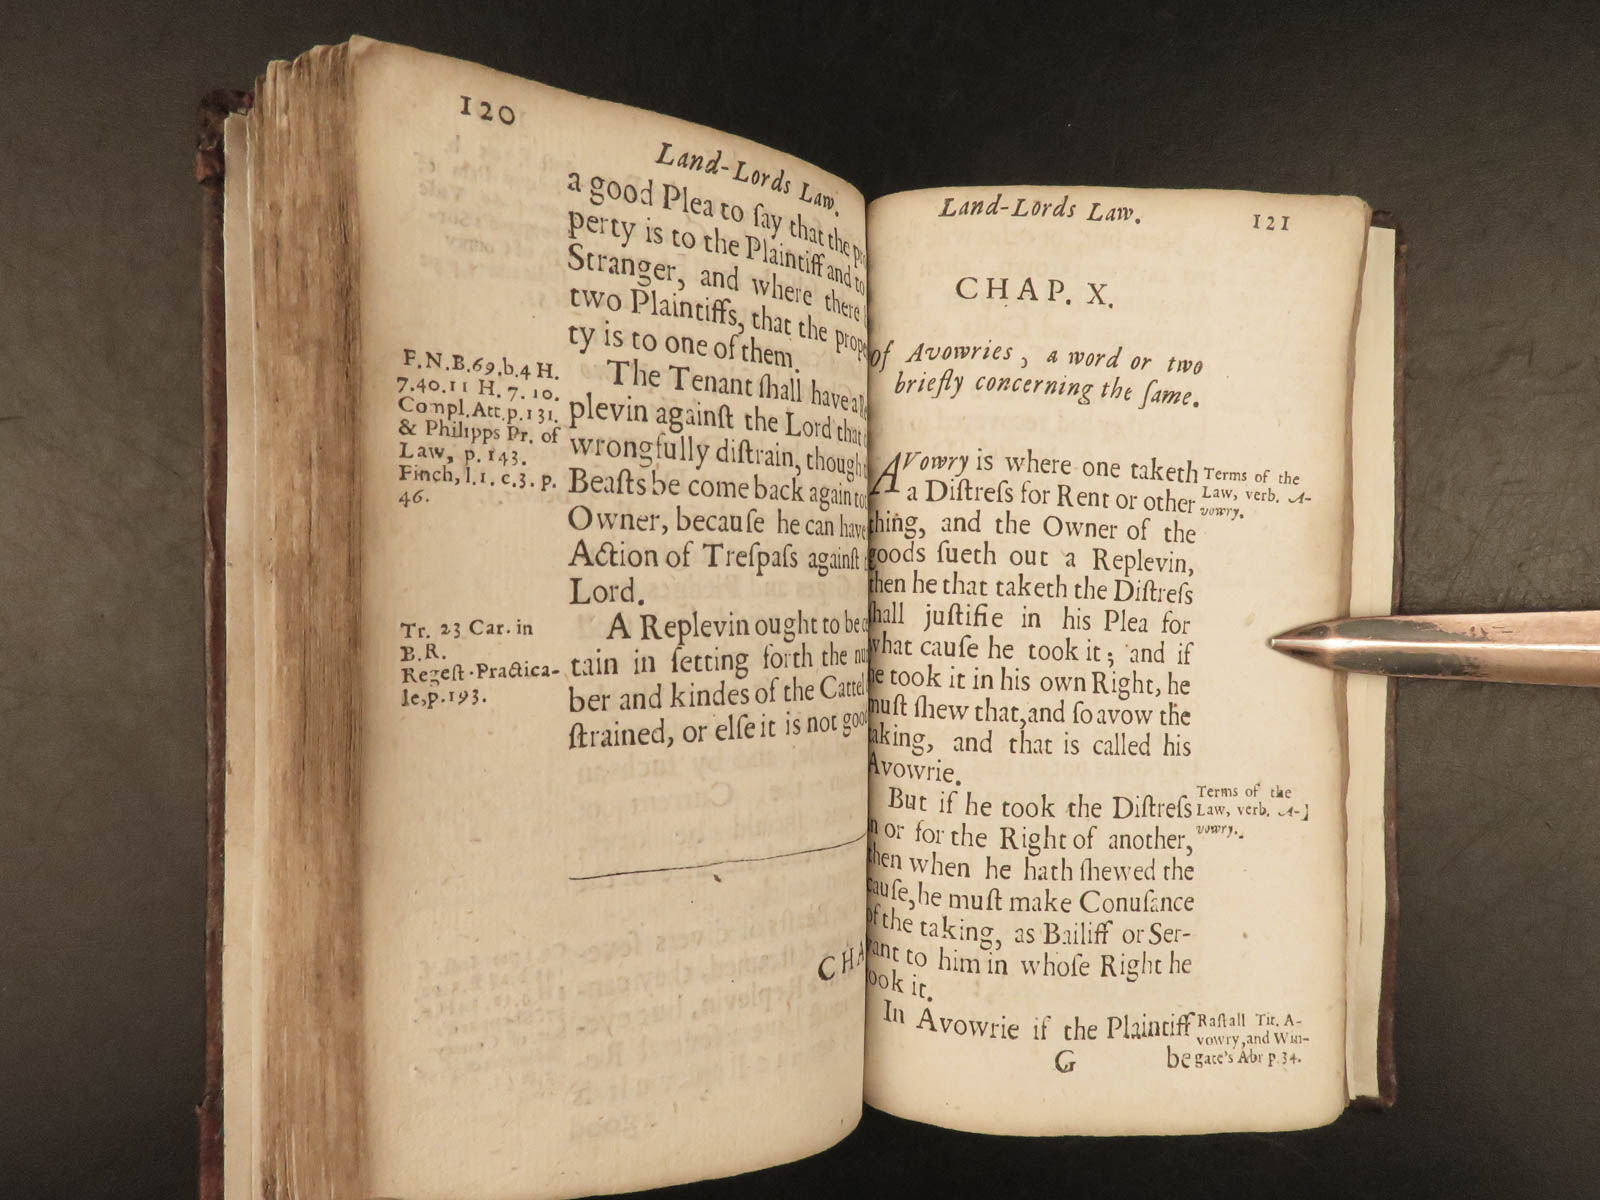 120
Land-Lords Law.
a good Plea to ſay that the
perty is to the Plaintiff and to
Stranger, and where there
two Plaintiffs, that the prope
ty is to one of them.
The Tenant ſhall have a
plevin against the Lord that
wrongfully diſtrain, though
Beaſts be come back again to
Owner, becauſe he can have
Action of Treſpaſs againſt
Lord.
A Replevin ought to be
tain in ſetting forth the
ber and kindes of the Cattel
ſtrained, or elſe it is not good
CHA
F.N.B.69.b.4 H.
7.40.11 H. 7. 10.
Compl.Att.p.131.
& Philipps Pr. of
Law, p. 143.
Finch, l.1. c.3. p.
46.
Tr. 23 Car. in
B.R.
Regeſt. Practica-
le,p.193.
Land-Lords Law.
121
CHAP. X.
of Avowries, a word or two
briefly concerning the ſame.
AVowry is where one taketh
a Diſtreſs for Rent or other
thing, and the Owner of the
goods ſueth out a Replevin,
then he that taketh the Diſtreſs
ſhall juſtifie in his Plea for
what cauſe he took it; and if
he took it in his own Right, he
muſt ſhew that,and ſo avow the
taking, and that is called his
Avowrie.
But if he took the Diſtreſs
in or for the Right of another,
then when he hath ſhewed the
cauſe,he muſt make Conuſance
of the taking, as Bailiff or Ser-
vant to him in whoſe Right he
took it.
In Avowrie if the Plaintiff
G
be
Terms of the
Law, verb. A-
vowry.
Terms of the
Law, verb. A-
vowry.
Raſtall Tit. A-
vowry,and Win-
gate's Abr p.34.